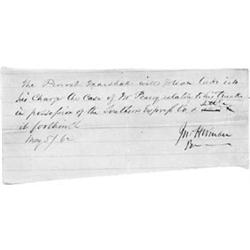 The Provost Marshal will please take into
his charge the case of Mr Percy relative to his trunks
in possession of the Southern Express Co &
it forthwith
May 5/62
Jno Herman